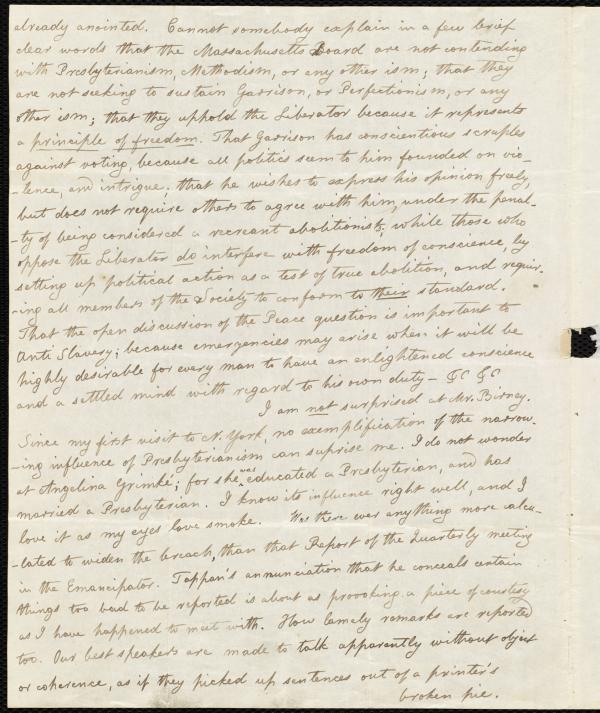 already anointed. Cannot somebody explain in a few brief
clear words that the Massachusetts Board are not contending
with Presbyterianism, Methodism, or any other ism; that they
are not seeking to sustain Garrison, or Perfectionism, or any
other ism; that they uphold the Liberator because it represents
a principle of freedom. That Garrison has conscientious scruples
against voting, because all politics seem to him founded on vio-
-lence, and intrigue. that he wishes to express his opinion freely,
but does not require others to agree with him, under the penal-
-ty of being considered a recreant abolitionist; while those who
oppose the Liberator do interfere with freedom of conscience, by
setting up political action as a test of true abolition, and requir-
-ing all members of the Society to conform to their standard.
That the open discussion of the Peace question is important to
Anti Slavery; because emergencies may arise when it will be
highly desirable for every man to have an enlightened conscience
and a settled mind with regard to his own duty - &c &c
I am not surprised at Mr. Birney.
Since my first visit to N. York, no exemplification of the narrow-
-ing influence of Presbyterianism can suprise me. I do not wonder
at Angelina Grimké; for she was educated a Presbyterian, and has
married a Presbyterian. I know its influence right well, and I
love it as my eyes love smoke. Was there ever anything more calcu-
-lated to widen the breach, than that Report of the Quarterly meeting
in the Emancipator. Tappan's annunciation that he conceals certain
things too bad to be reported is about as provoking a piece of courtesy
as I have happened to meet with. How lamely remarks are reported
too. Our best speakers are made to talk apparently without object
or coherence, as if they picked up sentences out of a printer's
broken pie.